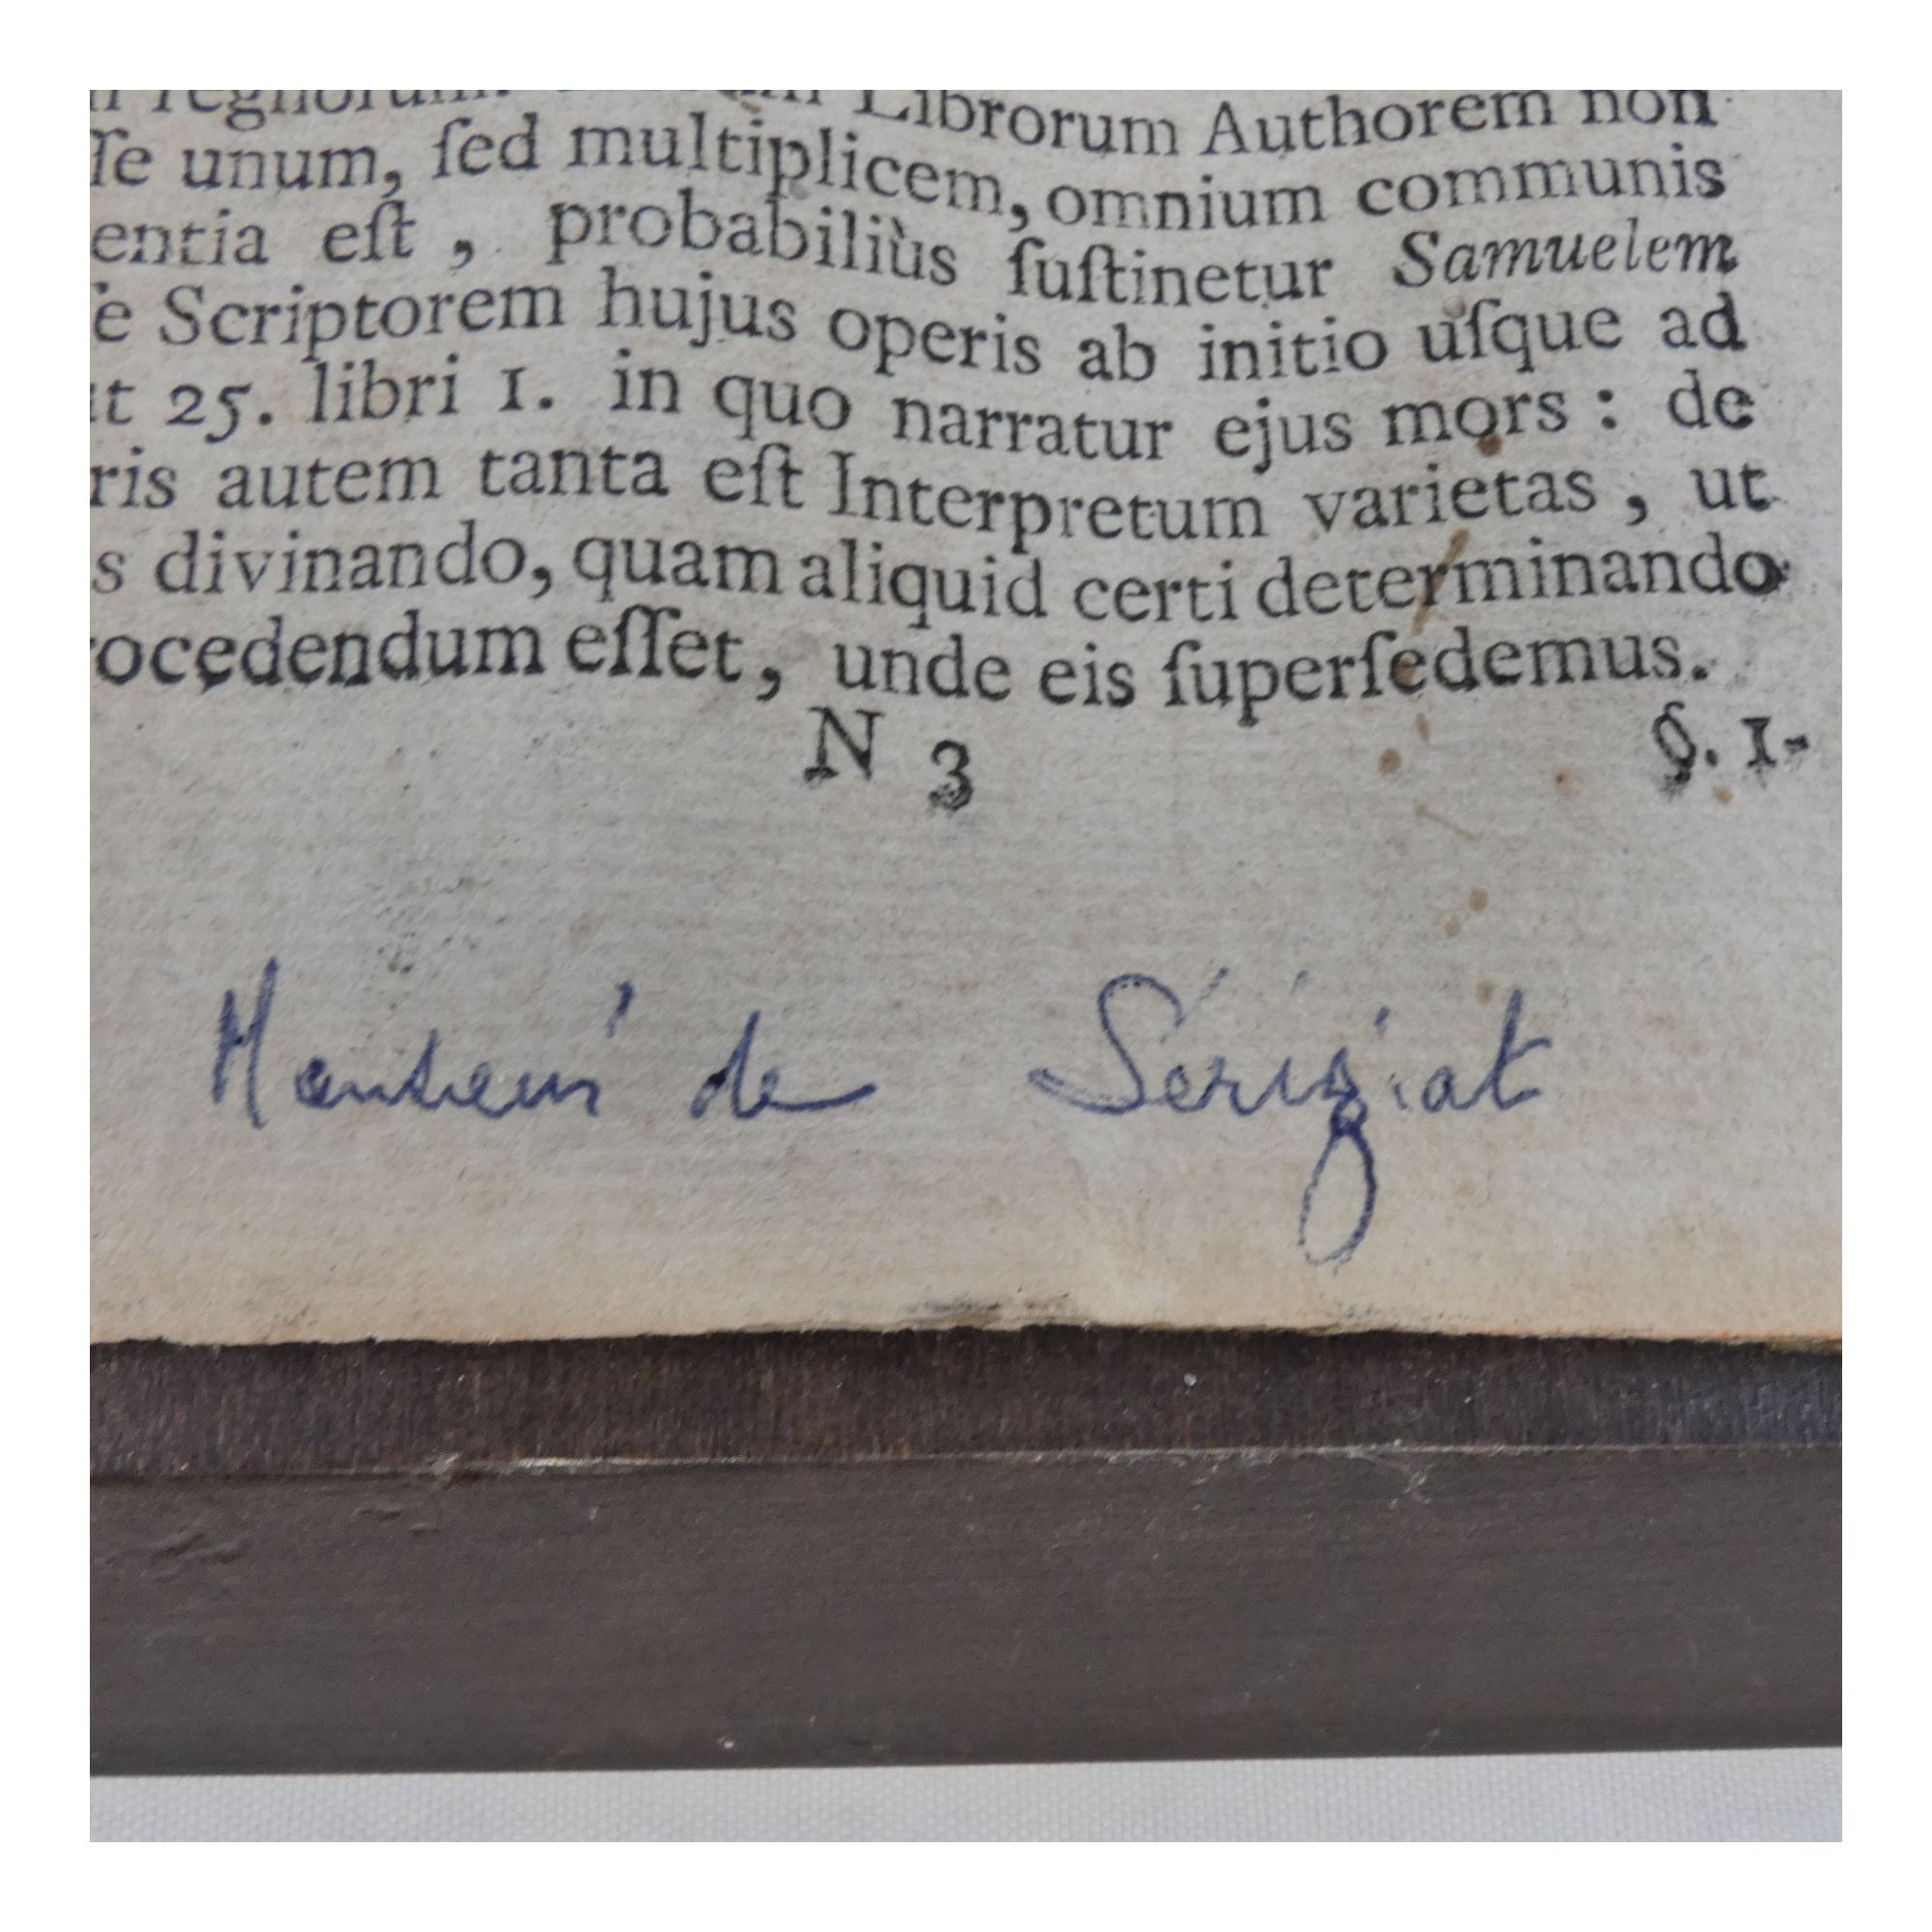 regnorum Librorum Authorem non
ſſe unum, ſed multiplicem, omnium communis
entia eſt, probabiliùs ſuſtinetur Samuelem
ſe Scriptorem hujus operis ab initio uſque ad
ut 25. libri 1. in quo narratur ejus mors: de
ris autem tanta eſt Interpretum varietas, ut
s divinando, quam aliquid certi determinando
rocedendum eſſet, unde eis ſuperſedemus.
N 3 §. 1.
de Sériziat